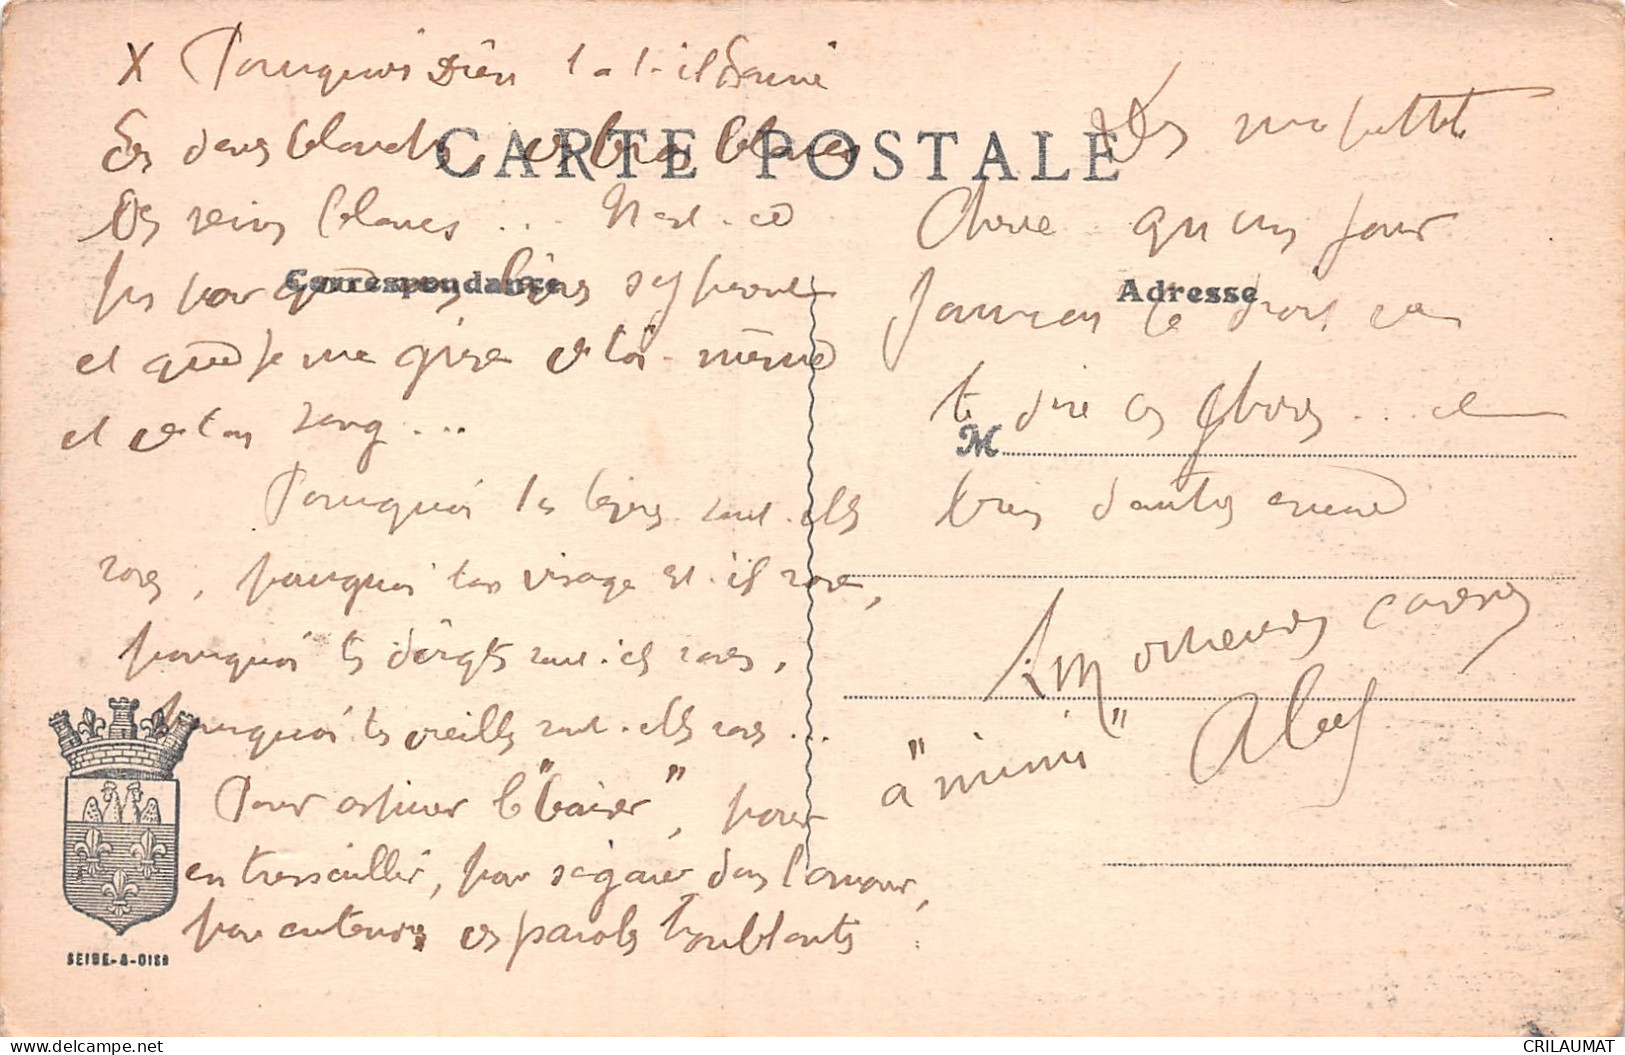 X Pourquoi Dieu t'a-t-il donné
ces dents blanches, ces bras blancs
ces seins blancs ... N'est-ce
pas pour que
et que je me grise de toi-même
et de ton sang ...
Pourquoi tes lèvres sont-elles
roses, pourquoi ton visage est-il rose,
pourquoi tes doigts sont-ils roses,
pourquoi tes oreilles sont-elles roses ...
Pour le "baiser", pour
en tressaillir, pour dans l'amour,
pour entendre ces paroles troublantes
CARTE POSTALE
Correspondance
SEINE-&-OISE
Adresse
M
Dis ma petite
chérie qu'un jour
j'aurai le droit de
te dire ces choses ... et
bien d'autres encore
à "mimi"
CRILAUMAT